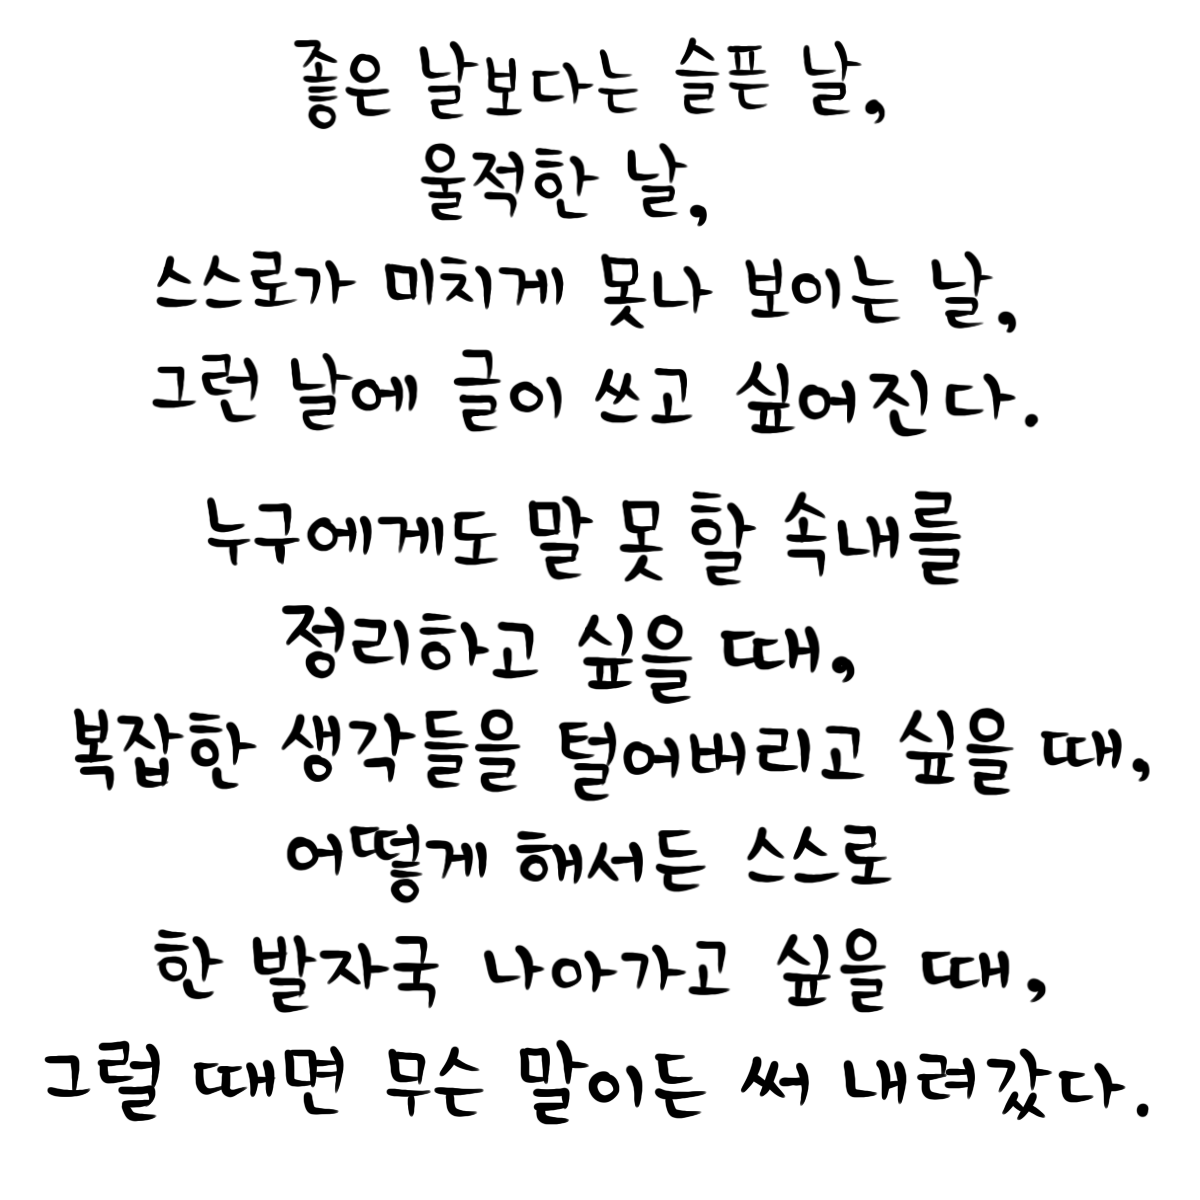 좋은 날보다는 슬픈 날,
울적한 날,
스스로가 미치게 못나 보이는 날,
그런 날에 글이 쓰고 싶어진다.
누구에게도 말 못 할 속내를
정리하고 싶을 때,
복잡한 생각들을 털어버리고 싶을 때,
어떻게 해서든 스스로
한 발자국 나아가고 싶을 때,
그럴 때면 무슨 말이든 써 내려갔다.